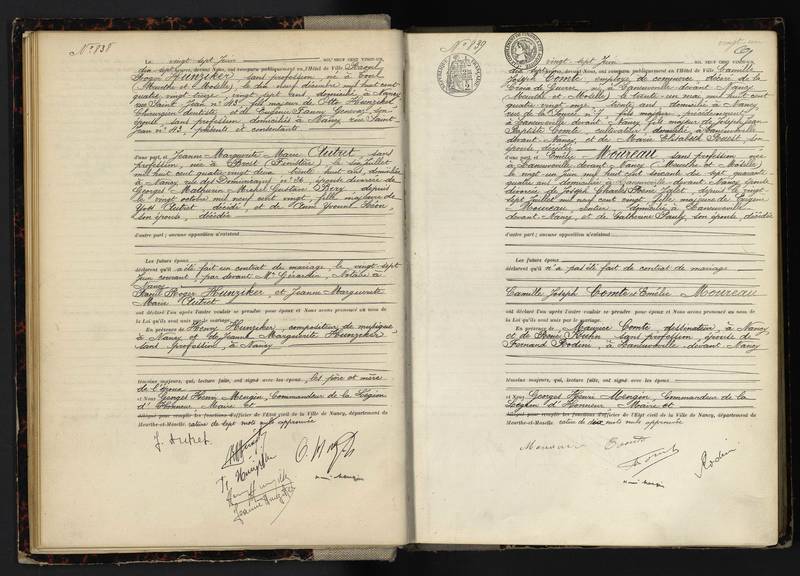 N° 838
Le vingt sept Juin mil neuf cent vingt-un,
dix sept heures, devant Nous, ont comparu publiquement en l'Hôtel de Ville Raoul
Roger Hunziker, sans profession, né à Toul
(Meurthe et Moselle), le dix neuf décembre mil huit cent
quatre vingt treize, vingt sept ans, domicilié à Nancy
rue Saint Jean n° 43, fils majeur de Otto Hunziker
Chirurgien dentiste, et de Eugénie Fanny Genevaz, son
épouse, sans profession, domiciliés à Nancy, rue Saint
Jean n° 43, présents et consentants
d'une part, et Jeanne Marguerite Marie Autret, sans
profession, née à Brest (Finistère), le six Juillet
mil huit cent quatre vingt deux, trente huit ans, domiciliée
à Nancy, rue des Dominicains n° 36, épouse divorcée de
Georges Mathurin Michel Gustave depuis
le vingt octobre mil neuf cent vingt, fille majeure de
Autret, décédé, et de Yvonne
son épouse, décédée
d'autre part; aucune opposition n'existant
Les futurs époux
déclarent qu'il a été fait un contrat de mariage, le vingt-sept
Juin courant, par devant Me Gérardin, Notaire à
Nancy
Raoul Roger Hunziker, et Jeanne Marguerite
Marie Autret
ont déclaré l'un après l'autre vouloir se prendre pour époux et Nous avons prononcé au nom de
la Loi qu'ils sont unis par le mariage.
En présence de Henry Hunziker, compositeur de musique,
à Nancy et de Jeanne Marguerite Hunziker
sans profession, à Nancy
témoins majeurs, qui, lecture faite, ont signé avec les époux, les père et mère
de l'époux
et Nous Georges Henri Mengin, Commandeur de la Légion
d'Honneur, Maire et
délégué pour remplir les fonctions d'officier de l'Etat civil de la Ville de Nancy, département de
Meurthe-et-Moselle. rature de sept mots nuls approuvée
J. Autret
Hunziker
Jeanne Hunziker
Henri Mengin
N° 839
Le vingt sept Juin mil neuf cent vingt-un,
dix heures, devant Nous, ont comparu publiquement en l'Hôtel de Ville Camille
Joseph Comte, employé de commerce, décoré de la
Croix de Guerre, né à Laneuveville devant Nancy
(Meurthe et Moselle), le trente un mai mil huit cent
quatre vingt onze, trente ans, domicilié à Nancy,
rue de la n° 7, fils majeur, précédemment
à Laneuveville devant Nancy, fils majeur de Joseph Jean
Baptiste Comte, cultivateur, domicilié à Laneuveville
devant Nancy, et de Marie Elisabeth son
épouse, décédée
d'une part, et Emélie Moureau, sans profession, née
à Laneuveville devant Nancy (Meurthe et Moselle),
le vingt un Juin mil huit cent soixante dix sept, quarante
quatre ans, domiciliée à Laneuveville devant Nancy, épouse
divorcée de Joseph Charles depuis le vingt
sept Juillet mil neuf cent vingt, fille majeure de Eugène
Moureau, domicilié à Laneuveville
devant Nancy, et de Catherine Pauly, son épouse, décédée
d'autre part; aucune opposition n'existant
Les futurs époux
déclarent qu'il n'a pas été fait de contrat de mariage
Camille Joseph Comte et Emélie Moureau
ont déclaré l'un après l'autre vouloir se prendre pour époux et Nous avons prononcé au nom de
la Loi qu'ils sont unis par le mariage.
En présence de Maurice Comte, dessinateur, à Nancy
et de sans profession, épouse de
Fernand Rodini, à Laneuveville devant Nancy
témoins majeurs, qui, lecture faite, ont signé avec les époux
et Nous Georges Henri Mengin, Commandeur de la
Légion d'Honneur, Maire et
délégué pour remplir les fonctions d'officier de l'Etat civil de la Ville de Nancy, département de
Meurthe-et-Moselle. rature de six mots nuls approuvée
Moureau Comte
Comte
Rodini
Henri Mengin